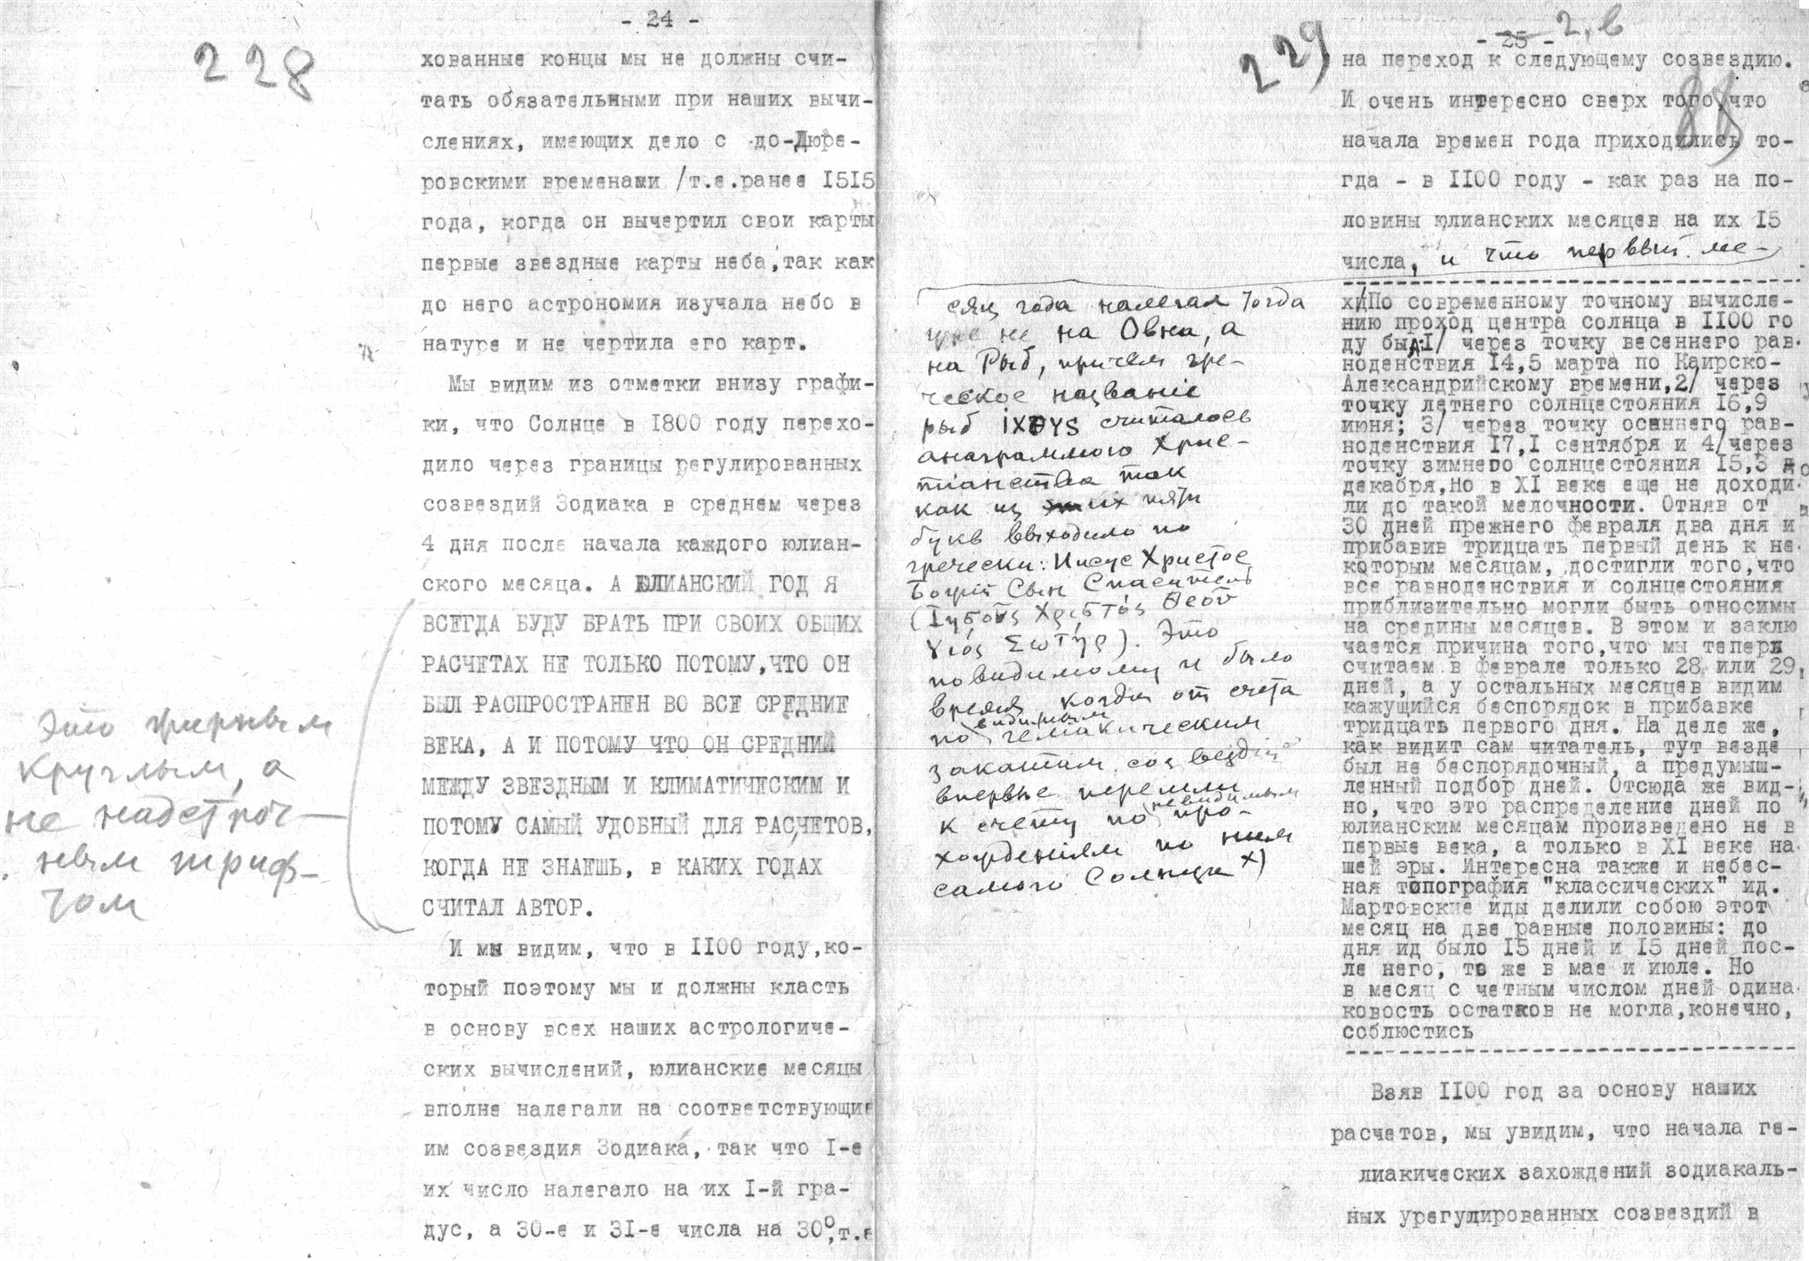 - 24 -
228
хованные концы мы не должны счи-
тать обязательными при наших вычи-
слениях, имеющих дело с до-Дюре-
ровскими временами /т.е.ранее 1515
года, когда он вычертил свои карты
первые звездные карты неба,так как
до него астрономия изучала небо в
натуре и не чертила его карт.
Мы видим из отметки внизу графи-
ки, что Солнце в 1800 году перехо-
дило через границы регулированных
созвездий Зодиака в среднем через
4 дня после начала каждого юлиан-
ского месяца. А ЮЛИАНСКИЙ ГОД Я
ВСЕГДА БУДУ БРАТЬ ПРИ СВОИХ ОБЩИХ
РАСЧЕТАХ НЕ ТОЛЬКО ПОТОМУ,ЧТО ОН
БЫЛ РАСПРОСТРАНЕН ВО ВСЕ СРЕДНИЕ
ВЕКА, А И ПОТОМУ ЧТО ОН СРЕДНИЙ
МЕЖДУ ЗВЕЗДНЫМ И КЛИМАТИЧЕСКИМ И
ПОТОМУ САМЫЙ УДОБНЫЙ ДЛЯ РАСЧЕТОВ,
КОГДА НЕ ЗНАЕШЬ, в КАКИХ ГОДАХ
СЧИТАЛ АВТОР.
И мы видим, что в 1100 году,ко-
торый поэтому мы и должны класть
в основу всех наших астрологиче-
ских вычислений, юлианские месяцы
вполне налегали на соответствующие
им созвездия Зодиака, так что 1-е
их число налегало на их 1-й гра-
дус, а 30-е и 31-е числа на 30°,т.е
Это жирным
круглым, а
не надстроч-
ным шриф-
том
229
- 25 -
2, в
88
на переход к следующему созвездию.
И очень интересно сверх того,что
начала времен года приходились то-
гда - в 1100 году - как раз на по-
ловины юлианских месяцев на их 15
числа, и что первый ме-
сяц года налегал тогда
уже не на Овна, а
на Рыб, причем гре-
ческое название
рыб ΙΧΘΥS считалось
анаграммою Хрис-
тианства так
как из их пяти
букв выходило по
гречески: Иисус Христос
Божий Сын Спаситель
(Ἰησοῦς Χριστός Θεοῦ
Υἱός Σωτήρ). Это
повидимому и было
время когда от счета
по видимым гелиакическим
закатам созвездий
впервые перешли
к счету по невидимым про-
хождениям по ним
самого Солнца х)
х/По современному точному вычисле-
нию проход центра солнца в 1100 го
ду был:1/ через точку весеннего рав-
ноденствия 14,5 марта по Каирско-
Александрийскому времени,2/ через
точку летнего солнцестояния 16,9
июня; 3/ через точку осеннего рав-
ноденствия 17,1 сентября и 4/через
точку зимнего солнцестояния 15,3
декабря,Но в XI веке еще не доходи-
ли до такой мелочности. Отняв от
30 дней прежнего февраля два дня и
прибавив тридцать первый день к не-
которым месяцам, достигли того,что
все равноденствия и солнцестояния
приблизительно могли быть относимы
на средины месяцев. В этом и заклю
чается причина того,что мы теперь
считаем в феврале только 28 или 29,
дней, а у остальных месяцев видим
кажущийся беспорядок в прибавке
тридцать первого дня. На деле же,
как видит сам читатель, тут везде
был не беспорядочный, а предумыш-
ленный подбор дней. Отсюда же вид-
но, что это распределение дней по
юлианским месяцам произведено не в
первые века, а только в XI веке на-
шей эры. Интересна также и небес-
ная топография "классических" ид.
Мартовские иды делили собою этот
месяц на две равные половины: до
дня ид было 15 дней и 15 дней пос-
ле него, то же в мае и июле. Но
в месяц с четным числом дней одина-
ковость остатков не могла,конечно,
соблюстись
Взяв 1100 год за основу наших
расчетов, мы увидим, что начала ге-
лиакических захождений зодиакаль-
ных урегулированных созвездий в